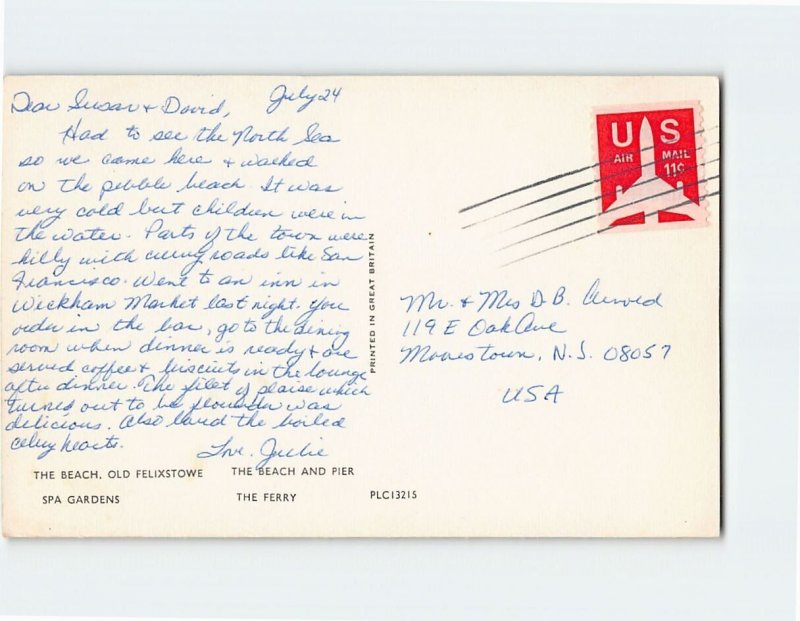 July 24
Dear Susan + David,
Had to see the North Sea
so we came here + walked
on the pebble beach. It was
very cold but children were in
the water. Parts of the town were
hilly with curvy roads like San
Francisco. Went to an inn in
Wickham Market last night. You
order in the bar, go to the dining
room when dinner is ready + are
served coffee + biscuits in the lounge
after dinner. The filet of plaise which
turned out to be flounder was
delicious. Also loved the boiled
celery hearts.
Love, Julie
THE BEACH, OLD FELIXSTOWE THE BEACH AND PIER
SPA GARDENS THE FERRY PLC13215
PRINTED IN GREAT BRITAIN
US
AIR MAIL
11¢
Mr. + Mrs D.B.
119 E Oak Ave
Moorestown, N.J. 08057
USA